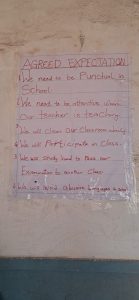 AGREED EXPECTATION
1. We need to be Punctual in
School.
2. We need to be attentive when
Our teacher is teaching
3. We will clean Our Classroom
4. We will Participate in Class.
5. We will study hard to Pass our
Examination to another Class
6. We will avoid abusive languages